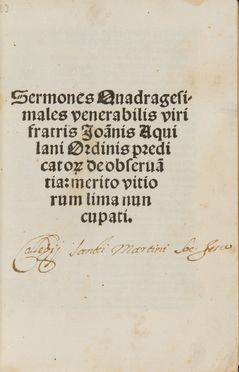 Sermones Quadragesi-
males venerabilis viri
fratris Joānis Aqui
lani Ordinis predi
catorꝝ de obseruā
tia: merito vitio
rum lima nun
cupati.
Collegij Sancti Martini Soc Jesu